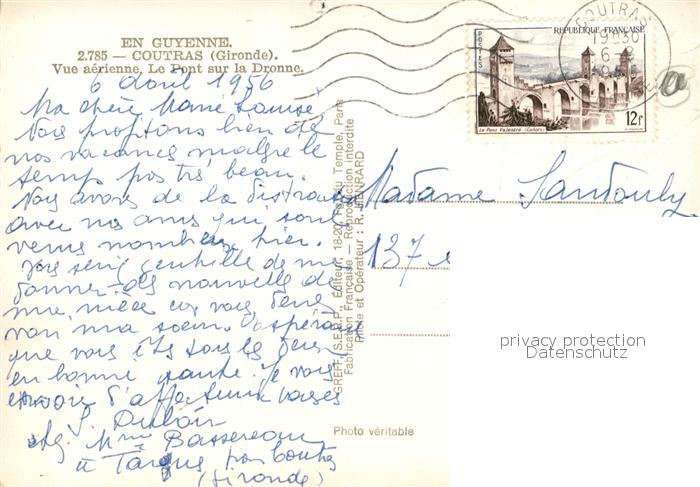 EN GUYENNE.
2.785 — COUTRAS (Gironde).
Vue aérienne, Le Pont sur la Dronne.
6 août 1956
Ma chère Marie Louise
Nous profitons bien de
nos vacances malgré le
temps pas très beau.
Nous avons de la distraction
avec nos amis qui sont
venus nombreux hier.
Vous seriez gentille de me
donner des nouvelles de
ma nièce
ma soeur. J'espère
que vous êtes tous les deux
en bonne santé. Je vous
envoie d'affectueux baisers
S. Dubois
chez Mme Bassereau
à par Coutras
(Gironde)
GREFF, S.E.R.P., Éditeur, 18-20, du Temple, Paris
Fabrication Française — Reproduction interdite
Photo et Opérateur : R. HENRARD
Photo véritable
COUTRAS
19H30
6-8
POSTES
REPUBLIQUE FRANÇAISE
Le Pont Valentré (Cahors)
12f
Madame Sandouly
137
privacy protection
Datenschutz
a